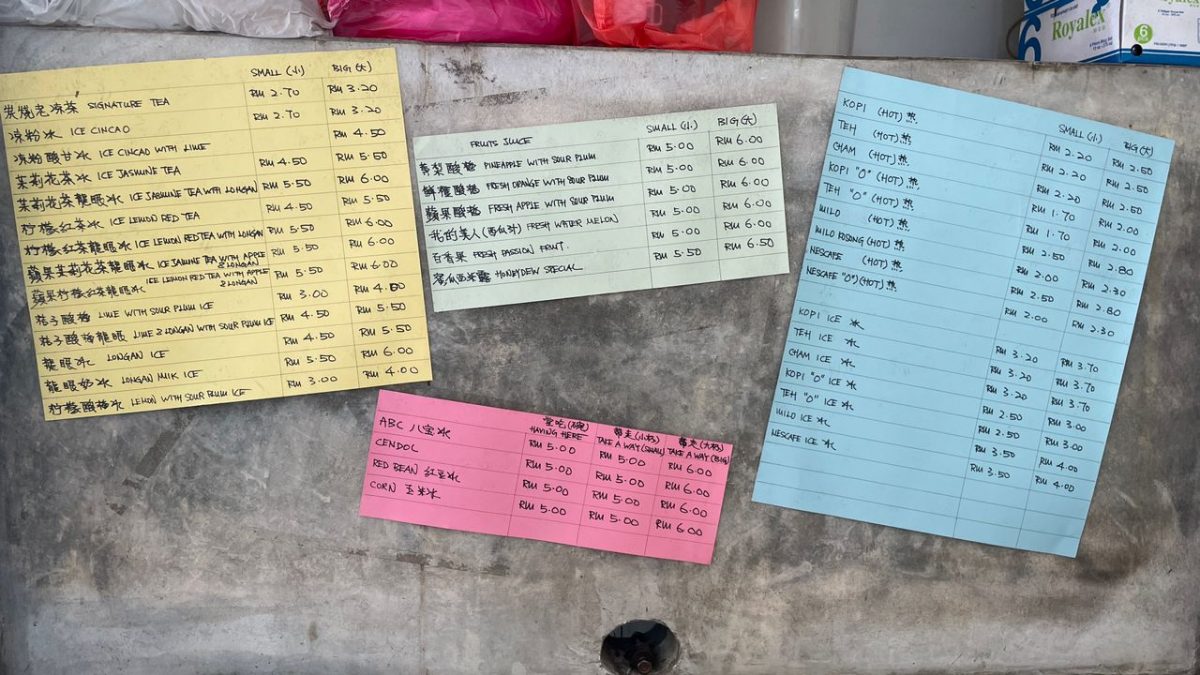 Royalex
6
SMALL (小) BIG (大)
炭燒老凉茶 SIGNATURE TEA RM 2.70 RM 3.20
凉粉冰 ICE CINCAO RM 2.70 RM 3.20
凉粉酸甘冰 ICE CINCAO WITH LIME RM 4.50
茉莉花茶冰 ICE JASMINE TEA RM 4.50 RM 5.50
茉莉花茶龍眼冰 ICE JASMINE TEA WITH LONGAN RM 5.50 RM 6.00
柠檬红茶冰 ICE LEMON RED TEA RM 4.50 RM 5.50
柠檬红茶龍眼冰 ICE LEMON RED TEA WITH LONGAN RM 5.50 RM 6.00
蘋果茉莉花茶龍眼冰 ICE JASMINE TEA WITH APPLE & LONGAN RM 5.50 RM 6.00
蘋果柠檬红茶龍眼冰 ICE LEMON RED TEA WITH APPLE & LONGAN RM 5.50 RM 6.00
桔子酸梅 LIME WITH SOUR PLUM ICE RM 3.00 RM 4.00
桔子酸梅龍眼 LIME & LONGAN WITH SOUR PLUM ICE RM 4.50 RM 5.50
龍眼冰 LONGAN ICE RM 4.50 RM 5.50
龍眼奶冰 LONGAN MILK ICE RM 5.50 RM 6.00
柠檬酸梅冰 LEMON WITH SOUR PLUM ICE RM 3.00 RM 4.00
FRUITS JUICE SMALL (小) BIG (大)
黄梨酸梅 PINEAPPLE WITH SOUR PLUM RM 5.00 RM 6.00
鲜橙酸梅 FRESH ORANGE WITH SOUR PLUM RM 5.00 RM 6.00
蘋果酸梅 FRESH APPLE WITH SOUR PLUM RM 5.00 RM 6.00
我的美人(西瓜汁) FRESH WATER MELON RM 5.00 RM 6.00
百香果 FRESH PASSION FRUIT. RM 5.00 RM 6.00
蜜瓜西米露 HONEYDEW SPECIAL RM 5.50 RM 6.50
堂吃(碗) 帶走(小杯) 帶走(大杯)
HAVING HERE TAKE A WAY (SMALL) TAKE A WAY (BIG)
ABC 八宝冰 RM 5.00 RM 5.00 RM 6.00
CENDOL RM 5.00 RM 5.00 RM 6.00
RED BEAN 紅豆冰 RM 5.00 RM 5.00 RM 6.00
CORN 玉米冰 RM 5.00 RM 5.00 RM 6.00
SMALL (小) BIG (大)
KOPI (HOT) 热 RM 2.20 RM 2.50
TEH (HOT) 热 RM 2.20 RM 2.50
CHAM (HOT) 热 RM 2.20 RM 2.50
KOPI "O" (HOT) 热 RM 1.70 RM 2.00
TEH "O" (HOT) 热 RM 1.70 RM 2.00
MILO (HOT) 热 RM 2.50 RM 2.80
MILO KOSONG (HOT) 热 RM 2.00 RM 2.30
NESCAFE (HOT) 热 RM 2.50 RM 2.80
NESCAFE "O" (HOT) 热 RM 2.00 RM 2.30
KOPI ICE 冰 RM 3.20 RM 3.70
TEH ICE 冰 RM 3.20 RM 3.70
CHAM ICE 冰 RM 3.20 RM 3.70
KOPI "O" ICE 冰 RM 2.50 RM 3.00
TEH "O" ICE 冰 RM 2.50 RM 3.00
MILO ICE 冰 RM 3.50 RM 4.00
NESCAFE ICE 冰 RM 3.50 RM 4.00